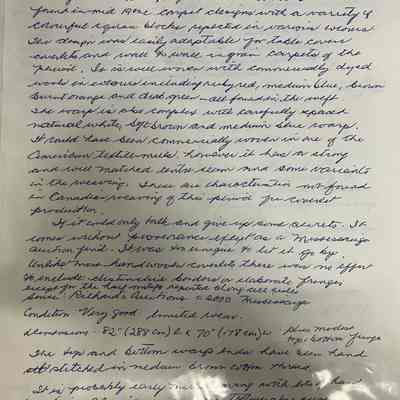 found in mid 19thc carpet designs with a variety of
colourful square blocks repeated in various colours
The design was easily adaptable for table covers
coverlets and wall to wall ingrain carpets of the
period. It is well woven with commercially dyed
wools in colours including ruby red, medium blue, brown
burnt orange and dark green - all found in the weft.
The warp is also complex with carefully spaced
natural white, soft brown and medium blue warp.
It could have been commercially woven in one of the
Canadian textile mills, however it has a strong
and well matched centre seam and some variants
in the weaving. These are characteristics not found
in Canadian weaving of this period for coverlet
production.
If it could only talk and give up some secrets. It
comes without provenance except as a Mississauga
auction find. It was too unique to let it go by.
Unlike most handwoven coverlets there was no effort
to include distinctive borders or elaborate fringes
except for the half motifs repeated along all sides
Source: Richards Auctions - 2000 Mississauga
Condition Very good limited wear.
Dimensions - 82" (288 cm) L x 70" (178 cm) w plus modest
top/bottom fringe
The top and bottom warp ends have been hand
stitched in medium brown cotton thread.
It is probably early